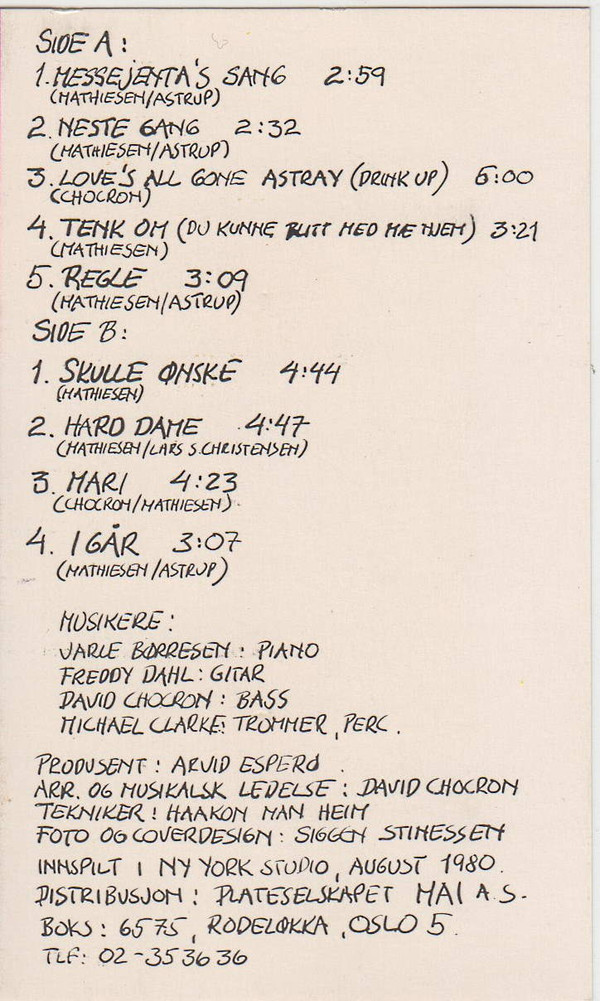 SIDE A:
1. MESSEJENTA'S SANG 2:59
(MATHIESEN/ASTRUP)
2. NESTE GANG 2:32
(MATHIESEN/ASTRUP)
3. LOVE'S ALL GONE ASTRAY (DRINK UP) 6:00
(CHOCRON)
4. TENK OM (DU KUNNE BLITT MED MÆ HJEM) 3:21
(MATHIESEN)
5. REGLE 3:09
(MATHIESEN/ASTRUP)
SIDE B:
1. SKULLE ØNSKE 4:44
(MATHIESEN)
2. HARD DAME 4:47
(MATHIESEN/LARS S. CHRISTENSEN)
3. MARI 4:23
(CHOCRON/MATHIESEN)
4. I GÅR 3:07
(MATHIESEN/ASTRUP)
MUSIKERE:
JARLE BØRRESEN: PIANO
FREDDY DAHL: GITAR
DAVID CHOCRON: BASS
MICHAEL CLARKE: TROMMER, PERC.
PRODUSENT: ARVID ESPERØ.
ARR. OG MUSIKALSK LEDELSE: DAVID CHOCRON
TEKNIKER: HAAKON MAN HEIM
FOTO OG COVERDESIGN: SIGGEN STINESSEN
INNSPILT I NY YORK STUDIO, AUGUST 1980.
DISTRIBUSJON: PLATESELSKAPET MAI A.S.
BOKS: 6575, RODELØKKA, OSLO 5.
TLF: 02-353636